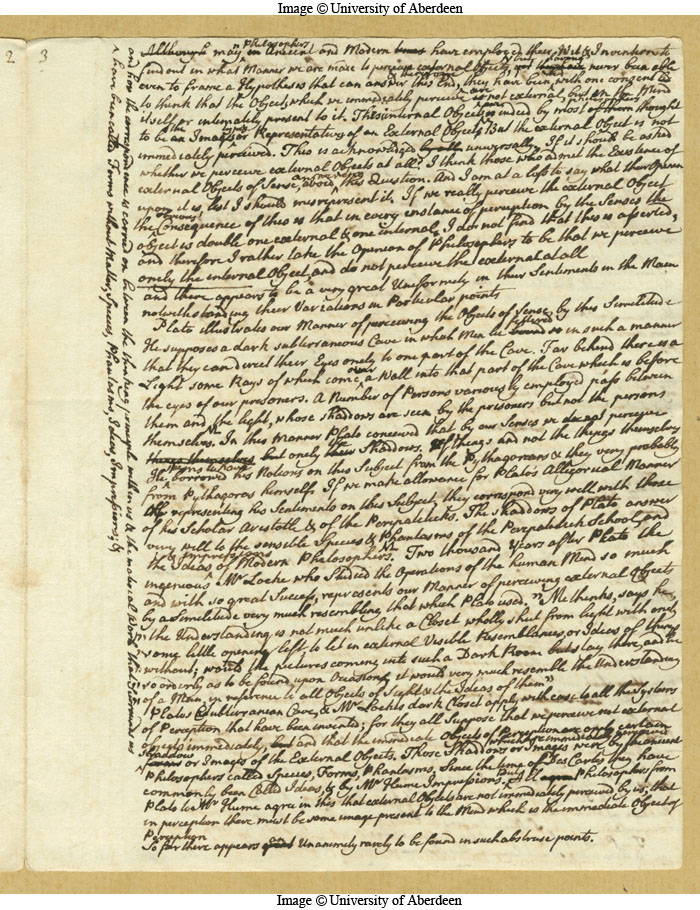 Image © University of Aberdeen
2 3
Although many Ancient and Modern Philosophers have employed their Wit & Invention to
find out in what Manner we are made to perceive external Objects, yet having never been able
even to frame a Hypothesis that can answer this End, they have been with one consent led
to think that the Object, which we immediately perceive is not external but in the Mind
itself or intimately present to it. This internal Object is indeed by most thought
to be an Image or Representative of an External Object, But the external Object is not
immediately perceived. This is acknowledged universally, If it should be asked
whether we perceive external Objects at all? I think those who admet the Existence of
external Objects of Sense, this Question. And I am at a loss to say what their Openion
upon it is lest I should misrepresent it, If we really perceive the external Object
the obvious Consequence of this is that in every instance of perception by the Senses the
object is double one external & one internal, I do not find that this is asserted,
and therefore I rather take the Openion of Philosophers to be that we perceive
onely the internal Object, and do not perceive the external at all
and there appears to be a very great Uniformity in their Sentiments in the Main
notwithstanding their Variations in Particular points
Plato illustrats our Manner of perceiving the Objects of Sense by this Similitude
He supposes a dark subterraneous Cave in which Men lie in such a manner
that they can direct their Eyes onely to one part of the Cave. Far behind there is a
Light some Rays of which come over a Wall into that part of the Cave which is before
the eyes of our prisoners. A Number of Persons variously employed pass between
them and the light, whose shaddows are seen by the prisoners but not the persons
themselves. In this Manner Plato conceived that by our Senses we perceive
things themselves but onely the Shaddows of things and not the things themselves
He seems to have borrowed his Notions on this Subject from the Pythagoreans & they very probably
from Pythagoras himself. If we make allowance for Plato's Allegorical Manner
of representing his Sentiments on this Subject, they correspond very well with those
of his Scholar Aristotle & of the Peripateticks. The Shaddows of Plato answer
very well to the sensible Species & Phantasms of the Peripatetick School, and
the Ideas & Impressions of Modern Philosophers. Two thousand Years after Plato the
ingenious Mr Locke who studied the Operations of the human Mind so much
and with so great Success, represents our Manner of perceiving external Objects
by a similitude very much resembling that which Plato used. "Methinks, says he,
"the Understanding is not much unlike a Closet wholly shut from light with only
"some little opening left to let in external Visible Resemblances or Ideas of things
without; would the pictures coming into such a Dark Room but stay there, and lie
"so orderly as to be found upon Occasion, it would very much resemble the Understanding
of a Man, in reference to all Objects of Sight & the Ideas of them"
Plato's Subterranean Cave, & Mr Locke's dark Closet apply with ease to all the Systems
of Perception that have been invented; for they all Suppose that we perceive not external
objects immediately, and that the immediate Objects of Perception are only certain
Shaddows or Images of the External Objects. Those Shaddows or Images which we immediately perceived were by the ancient
Philosophers called Species, Forms, Phantasms, Since the time of Des Cartes they have
commonly been Called Ideas, & by Mr Hume Impressions. But all Philosophers from
Plato to Mr Hume agree in this that external Objects are not immediately perceived by us, that
in perception there must be some image present to the Mind which is the immediate Object of
Perception
So far there appears great Unanimity rarely to be found in such abstruse points.
and how the correspondence is carried on between the thinking principle within us & the material World that surrounds us
have been called Forms without Matter, Species, Phantasms, Ideas, Impressions, &
Image © University of Aberdeen